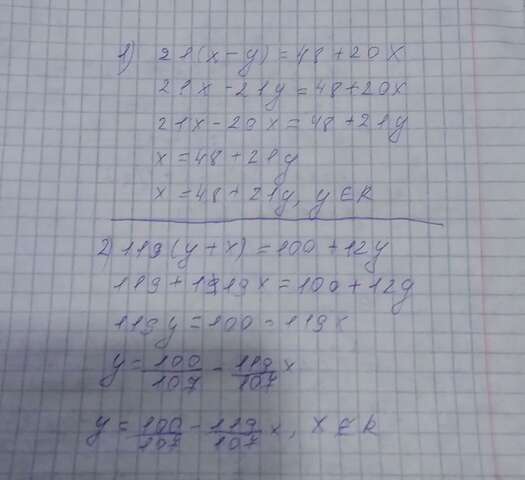 1) 21(x-y)=48+20x
21x-21y=48+20x
21x-20x=48+21y
x=48+21y
x=48+21y, y∈R
2) 119(y+x)=100+12y
119+1919x=100+12y
119y=100-119x
y=100/107-119/107x
y=100/107-119/107x, x∈R